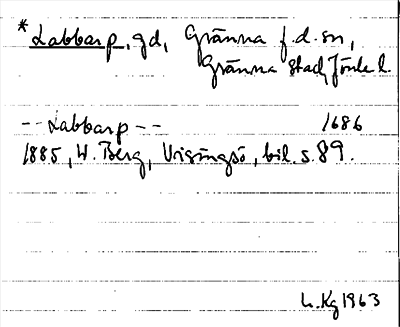 * Labbarp, gd, Gränna f.d. sn,
Gränna stad, Jönk. l.
-- Labbarp -- 1686
1885, W. Berg, Visingsö, bil. s. 89.
L. Kg 1963